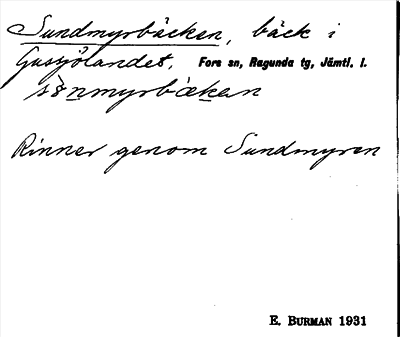 Sundmyrbäcken, bäck i
Gusjölandet. Fors sn, Ragunda tg, Jämtl. l.
Rinner genom Sundmyren
E. BURMAN 1931